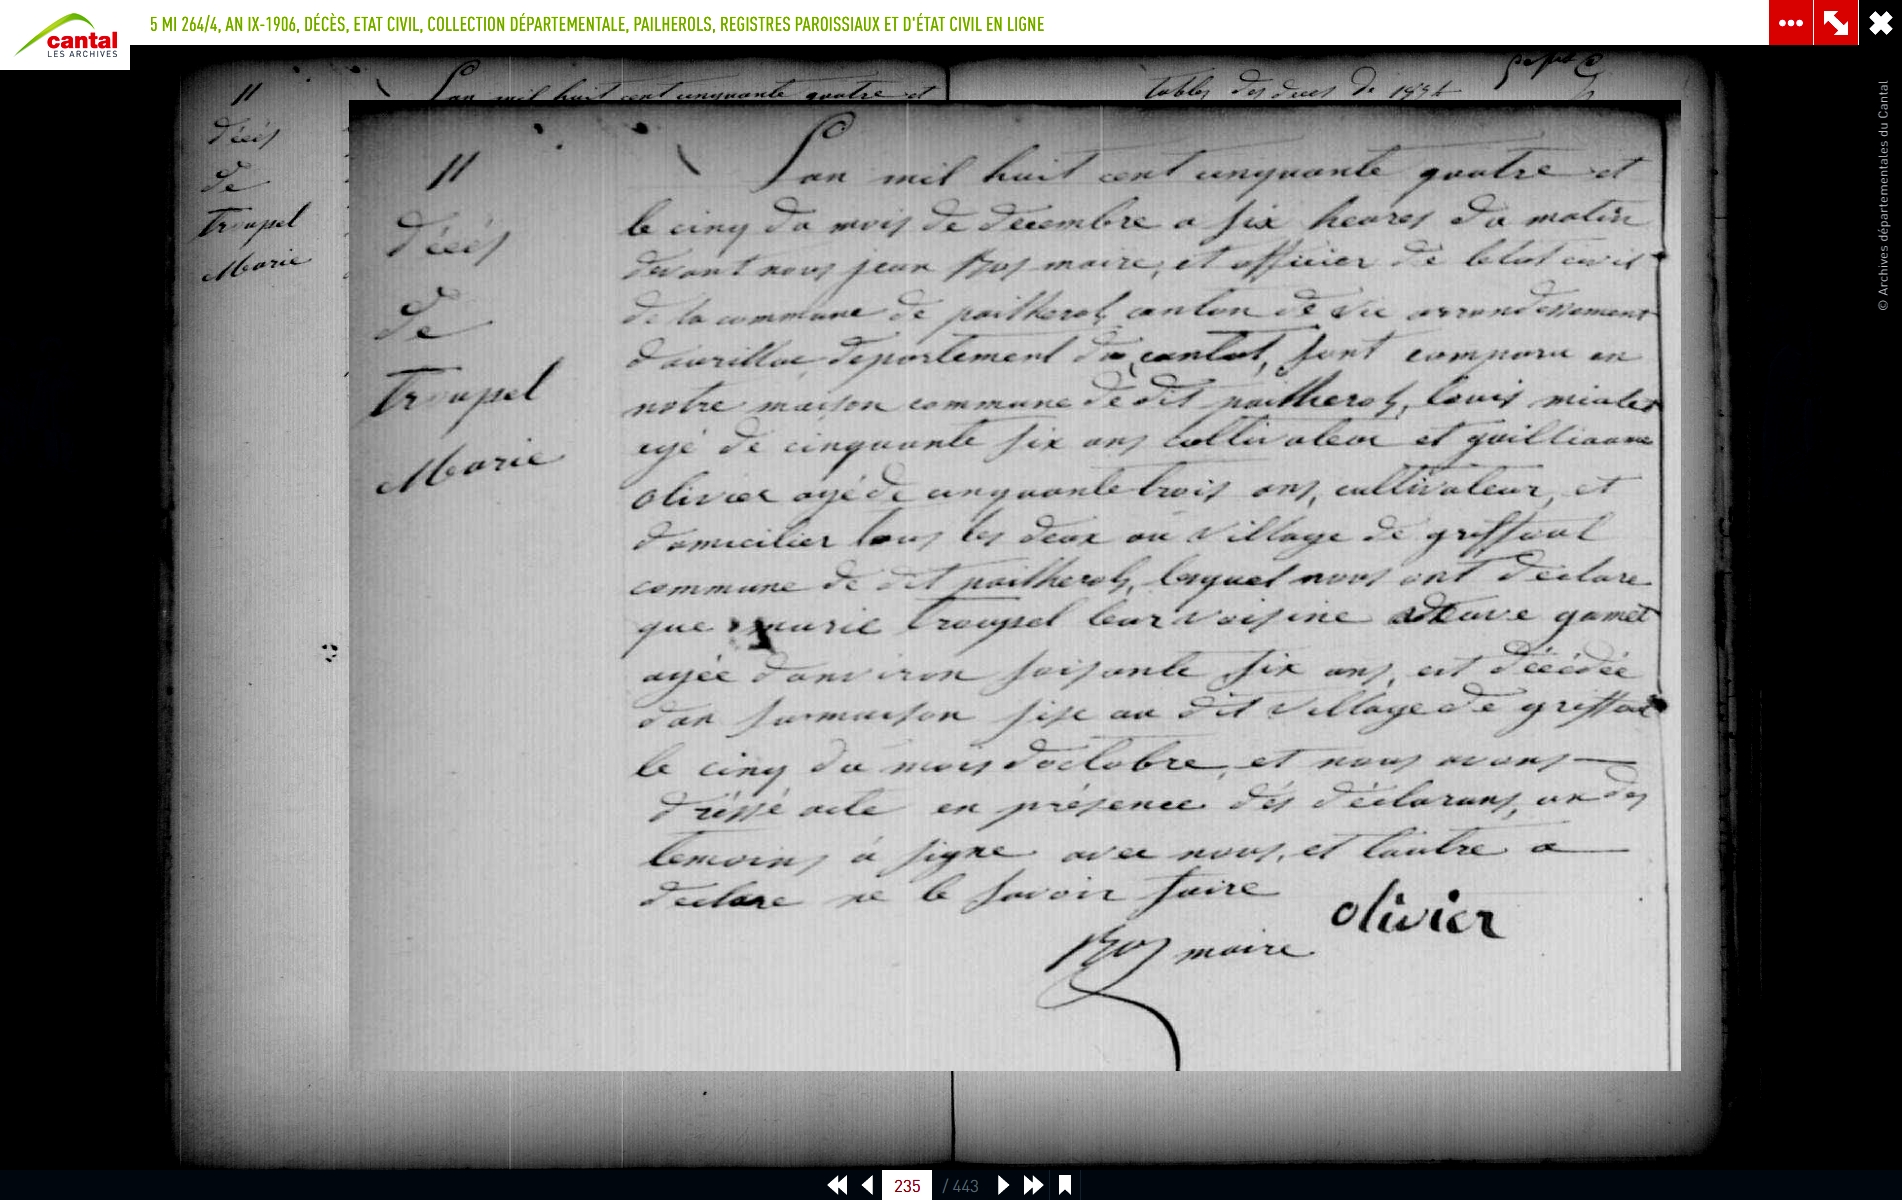 cantal
LES ARCHIVES
5 MI 264/4, AN IX-1906, DÉCÈS, ETAT CIVIL, COLLECTION DÉPARTEMENTALE, PAILHEROLS, REGISTRES PAROISSIAUX ET D'ÉTAT CIVIL EN LIGNE
© Archives départementales du Cantal
11
décès
de
Troupel
Marie
L'an mil huit cent cinquante quatre et
tables des deces de 1854
11
décés
de
Troupel
Marie
L'an mil huit cent cinquante quatre et
le cinq du mois de decembre a six heures du matin
devant nous jean Ros maire, et officier de letat civil
de la commune de pailherols canton de vic arrondessement
d'aurillac, departement du cantal, sont comparu en
notre maison commune de dit pailherols, louis mialet
agé de cinquante six ans cultivateur et guilliaume
olivier agé de cinquante trois ans, cultivateur, et
domicilier tous les deux au village de griffoul
commune de dit pailherols, lesquel nous ont déclare
que marie troupel leur voisine veuve gamet
agée d'anviron soisante six ans, est décédée
dan sa maison sise au dit village de griffoul
le cinq du mois d'octobre, et nous avons
dréssé acte en présence dés déclarans, un des
temoins à signe avec nous, et lautre a
declare ne le savoir faire
olivier
Ros maire
235 / 443